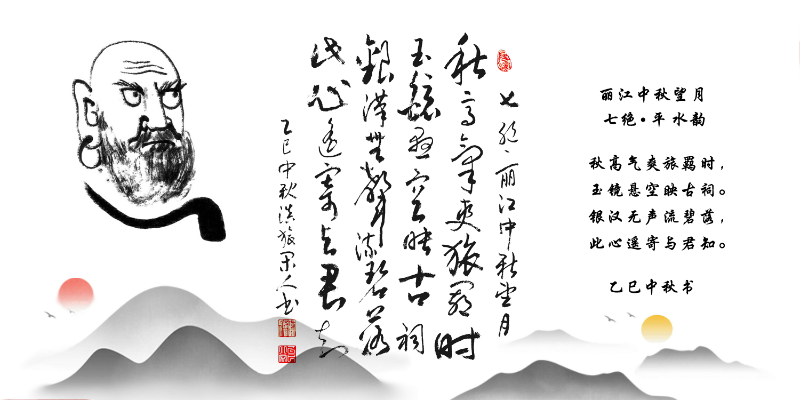 七绝·丽江中秋望月
秋高氣爽旅羁时
玉鏡悬空映古祠
銀漢無聲流碧落
此心遥寄与君知
乙巳中秋旅人书
丽江中秋望月
七绝·平水韵
秋高气爽旅羁时，
玉镜悬空映古祠。
银汉无声流碧落，
此心遥寄与君知。
乙巳中秋书